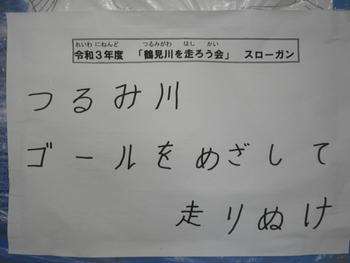 れいわ にねんど つるみがわ はし かい
令和3年度 「鶴見川を走ろう会」 スローガン
つるみ川
ゴールをめざして
走りぬけ